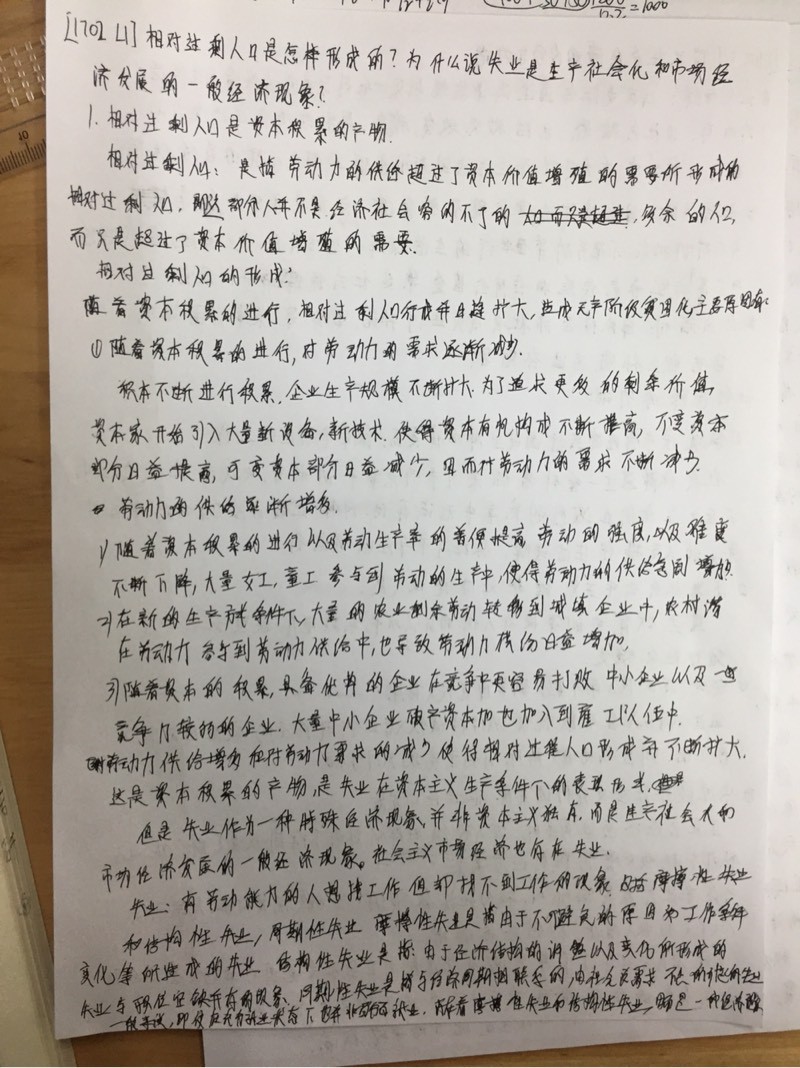 =1000
[1702 L1] 相对过剩人口是怎样形成的?为什么说失业是生产社会化和市场经
济发展的一般经济现象?
1. 相对过剩人口是资本积累的产物.
相对过剩人口:是指劳动力的供给超过了资本价值增殖的需要所形成的
相对过剩人口,即这部份人并不是经济社会容纳不了的 多余的人口,
而只是超过了资本价值增殖的需要.
相对过剩人口的形成:
随着资本积累的进行,相对过剩人口形成并日趋扩大,造成无产阶级贫困化主要原因有:
① 随着资本积累的进行,对劳动力的需求逐渐减少.
积本不断进行积累,企业生产规模不断扩大.为了追求更多的剩余价值,
资本家开始引入大量新设备,新技术.使得资本有机构成不断提高,不变资本
部分日益提高,可变资本部分日益减少,因而对劳动力的需求不断减少.
劳动力的供给逐渐增多.
1) 随着资本积累的进行以及劳动生产率的普便提高 劳动的强度,以及难度
不断下降,大量女工,童工参与到劳动的生产中,使得劳动力的供给急剧增加.
2) 在新的生产方式条件下,大量的农业剩余劳动转移到城镇企业中,农村潜
在劳动力参与到劳动力供给中,也导致劳动力供给日益增加.
3) 随着资本的积累,具备优势的企业在竞争中更容易打败中小企业以及一些
竞争力较弱的企业.大量中小企业破产资本加也加入到雇工队伍中.
劳动力供给增多和对劳动力需求的减少使得相对过程人口形成并不断扩大.
这是资本积累的产物,是失业在资本主义生产条件下的表现形式.
但是失业作为一种特殊经济现象,并非资本主义独有.而是生产社会大的
市场经济发展的一般经济现象。社会主义市场经济也存在失业.
失业:有劳动能力的人想找工作但却找不到工作的现象 包括摩擦性失业
和结构性失业,周期性失业 摩擦性失业是指由于不可避免的原因如工作条件
变化等所造成的失业 结构性失业是指:由于经济结构的调整以及变化所形成的
失业与职位空缺并存的现象.周期性失业是指与经济周期相联系的,由社会总需求不足所引起的失业
一般来说,即使在充分就业状态下也并非 失业.存着摩擦性失业和结构性失业,